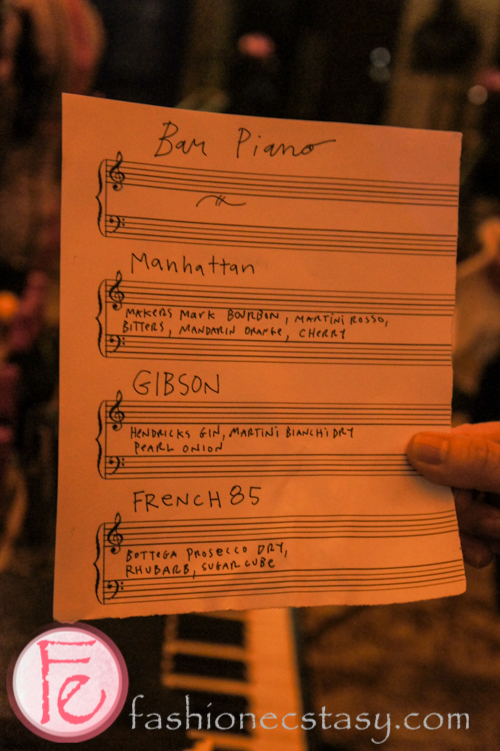 Bar Piano
Manhattan
MAKERS MARK BOURBON, MARTINI ROSSO,
BITTERS, MANDARIN ORANGE, CHERRY
GIBSON
HENDRICKS GIN, MARTINI BIANCHI DRY
PEARL ONION
FRENCH 85
BOTTEGA PROSECCO DRY,
RHUBARB, SUGAR CUBE
Fe
fashionecstasy.com